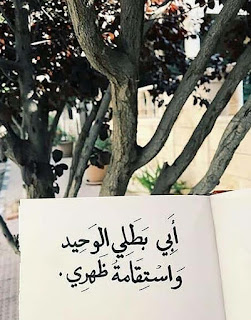 أَبِي بَطَلِي الوَحِيد
وَاسْتِقَامةُ ظَهرِي.